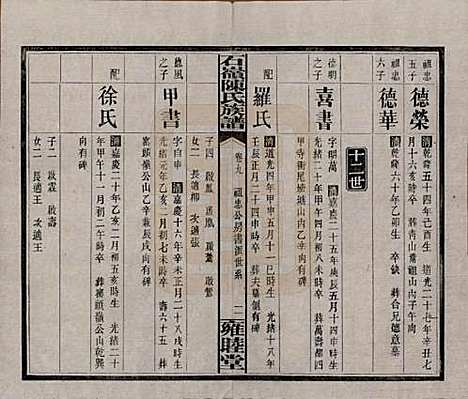 祖忠
五子
德榮
清乾隆五十四年己酉生 道光二十一年辛丑七
月十六亥時卒 葬靑山蕭祖山內子午向有碑
祖忠
六子
德華
清乾隆六十年乙卯生 卒缺 葬合兄德意墓
十二世
德明
之子
喜書
字明萬 清嘉慶二十五年庚辰五月十四申時生
光緒二十一年甲午四月初八未時卒 葬萬壽四
甲寺衝尾嫦塘山內辛乙向有碑
配
羅氏
清道光四年甲申五月十一巳時生 光緒十八年
壬辰正月二十四申時卒 葬夫墓
子四 啟鳳 啟凰 啟蕃 啟繁
女二 長適柳 次適張
石嶺陳氏族譜
卷之九 祖忠公房書派世系
二
雍睦堂
德風
之子
甲書
字自申 清嘉慶十六年辛未正月二十八戌時生
光緒元年乙亥二月初七未時卒 壽六十五 葬
寨頭嶺公山乙辛兼辰戌向有碑
配
徐氏
清嘉慶二十年乙亥二月初五亥時生 光緒二十
年甲午十一月初二午時卒 葬寨頭嶺公山乾巽
向有碑
子二 啟霖 啟壽
女二 長適王 次適王